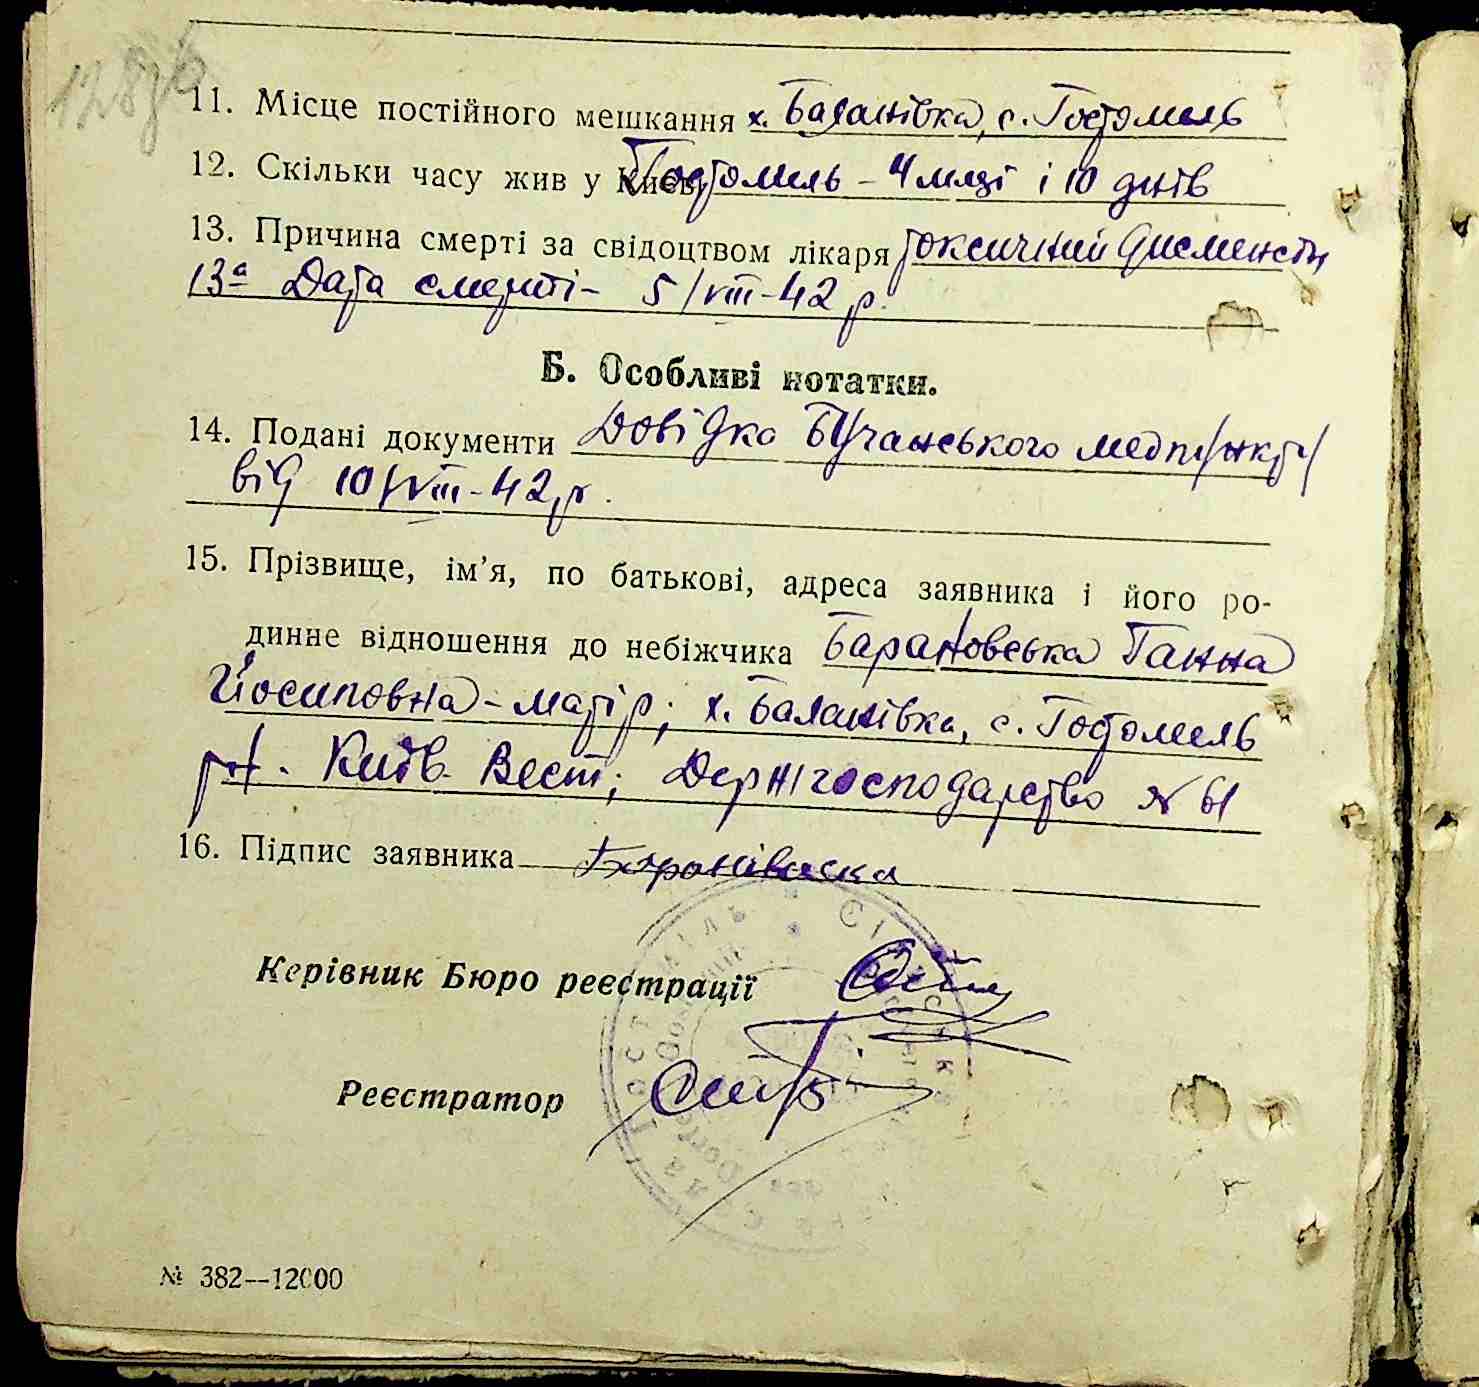 128 зв
11. Місце постійного мешкання х. Баланівка, с. Гостомель
12. Скільки часу жив у Києві Гостомель – 4 м-ці і 10 днів
13. Причина смерті за свідоцтвом лікаря токсичний
13а Дата смерті – 5/VIII–42 р.
Б. Особливі нотатки.
14. Подані документи Довідка Бучанського медпункту
від 10/VIII–42 р.
15. Прізвище, ім'я, по батькові, адреса заявника і його ро-
динне відношення до небіжчика Барановська Ганна
Йосиповна – матір; х. Баланівка, с. Гостомель
Київ Вест; Держгосподарство №
16. Підпис заявника
Керівник Бюро реєстрації
Реєстратор
№ 382—12000